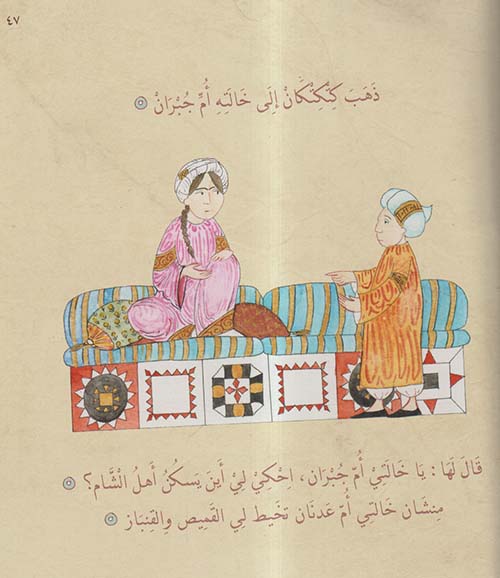 ٤٧
ذَهَبَ كِتْكِتْكَانْ إِلَى خَالَتِهِ أُمِّ جُبْرَانْ
قَالَ لَهَا : يَا خَالَتِيْ أُمّ جُبْرَان، اِحْكِيْ لِيْ أَينَ يسكُنُ أهلُ الْشَّام؟
مِنشَان خَالتي أُمّ عَدنَان تخَيط لي القَمِيص والقِنبَاز